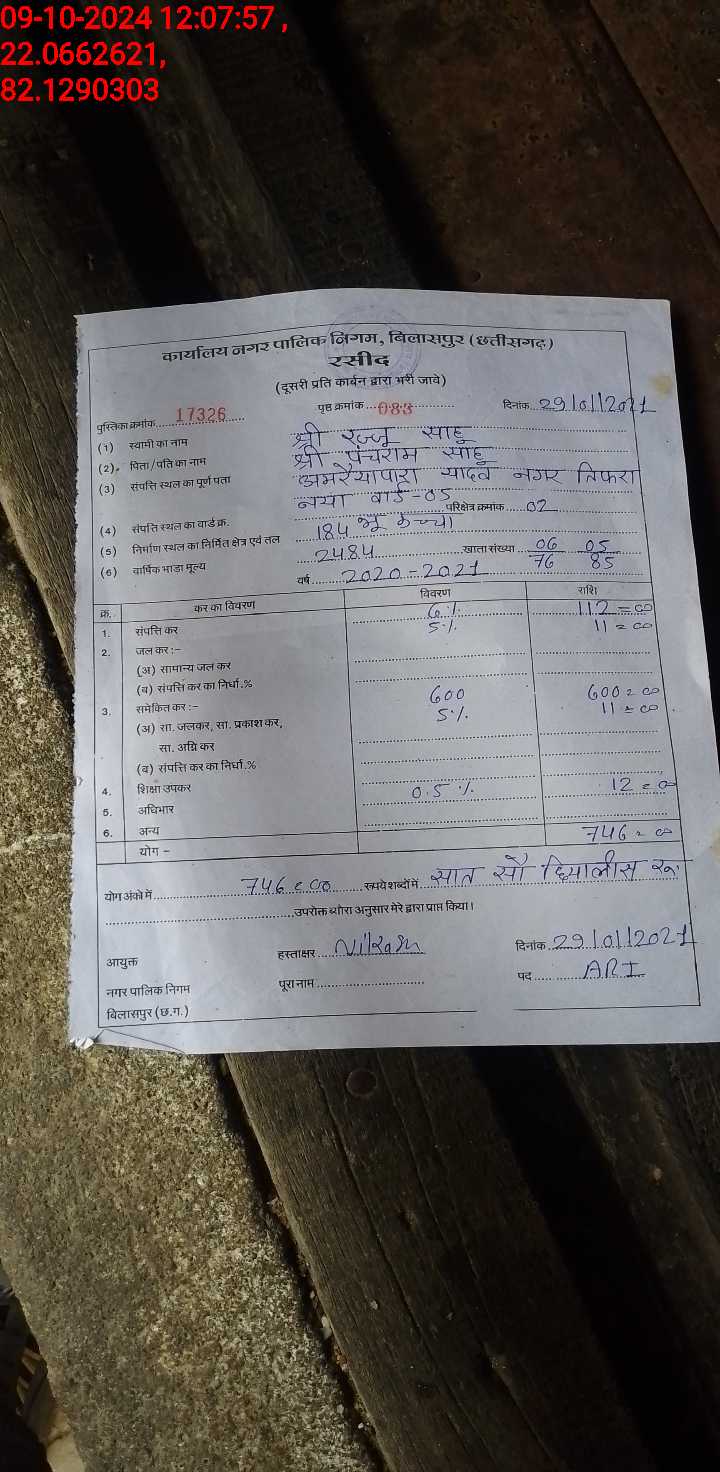 09-10-2024 12:07:57 ,
22.0662621,
82.1290303
कार्यालय नगर पालिक निगम, बिलासपुर (छत्तीसगढ़)
रसीद
(दूसरी प्रति कार्बन द्वारा भरी जावे)
पुस्तिका क्रमांक 17326 पृष्ठ क्रमांक 083 दिनांक 29/01/2021
(1) स्वामी का नाम श्री रज्जू साहू
(2) पिता/पति का नाम श्री पंचराम साहू
(3) संपत्ति स्थल का पूर्ण पता अमरैयापारा यादव नगर तिफरा
नया वार्ड-05
(4) संपत्ति स्थल का वार्ड क्र. परिक्षेत्र क्रमांक 02
(5) निर्माण स्थल का निर्मित क्षेत्र एवं तल 184 भू कच्चा
(6) वार्षिक भाड़ा मूल्य 2484 खाता संख्या 06/76 05/85
वर्ष 2020-2021
क्र. कर का विवरण विवरण राशि
1. संपत्ति कर 6% 112=00
2. जल कर :- 5% 11=00
(अ) सामान्य जल कर
(ब) संपत्ति कर का निर्धा.%
3. समेकित कर :- 600 600=00
(अ) सा. जलकर, सा. प्रकाश कर, 5% 11=00
सा. अग्नि कर
(ब) संपत्ति कर का निर्धा.%
4. शिक्षा उपकर 0.5% 12=00
5. अधिभार
6. अन्य
योग - 746=00
योग अंको में 746=00 रूपये शब्दों में सात सौ छियालीस रू
उपरोक्त ब्योरा अनुसार मेरे द्वारा प्राप्त किया।
आयुक्त हस्ताक्षर दिनांक 29/01/2021
नगर पालिक निगम पूरा नाम पद ARI
बिलासपुर (छ.ग.)